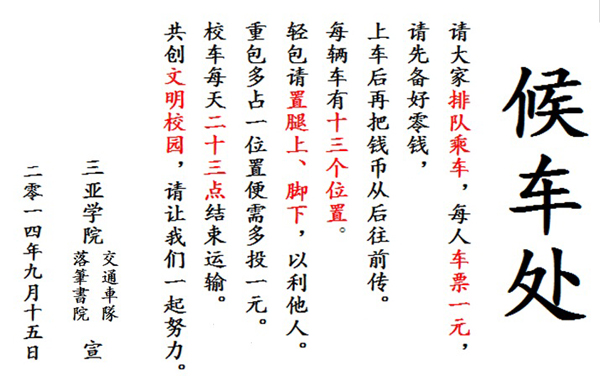 候车处
请大家排队乘车，每人车票一元，
请先备好零钱，
上车后再把钱币从后往前传。
每辆车有十三个位置。
轻包请置腿上、脚下，以利他人。
重包多占一位置便需多投一元。
校车每天二十三点结束运输。
共创文明校园，请让我们一起努力。
三亚学院 交通車隊 落筆書院 宣
二零一四年九月十五日